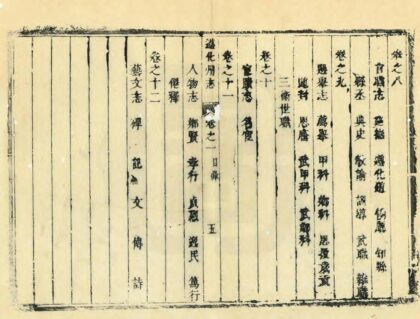 卷之八
官職志 遵化 知縣
縣丞 典史 教諭 訓導 武職 雜職
卷之九
選舉志 薦舉 甲科 鄉科 恩拔歲貢
恩廕 武甲科 武鄉科
三衛世職
卷之十
官蹟志
卷之十一
遵化州志 卷之一 目錄 五
人物志 鄉賢 孝行 貞烈 逸民 篤行
僊釋
卷之十二
藝文志 碑 記 文 傳 詩